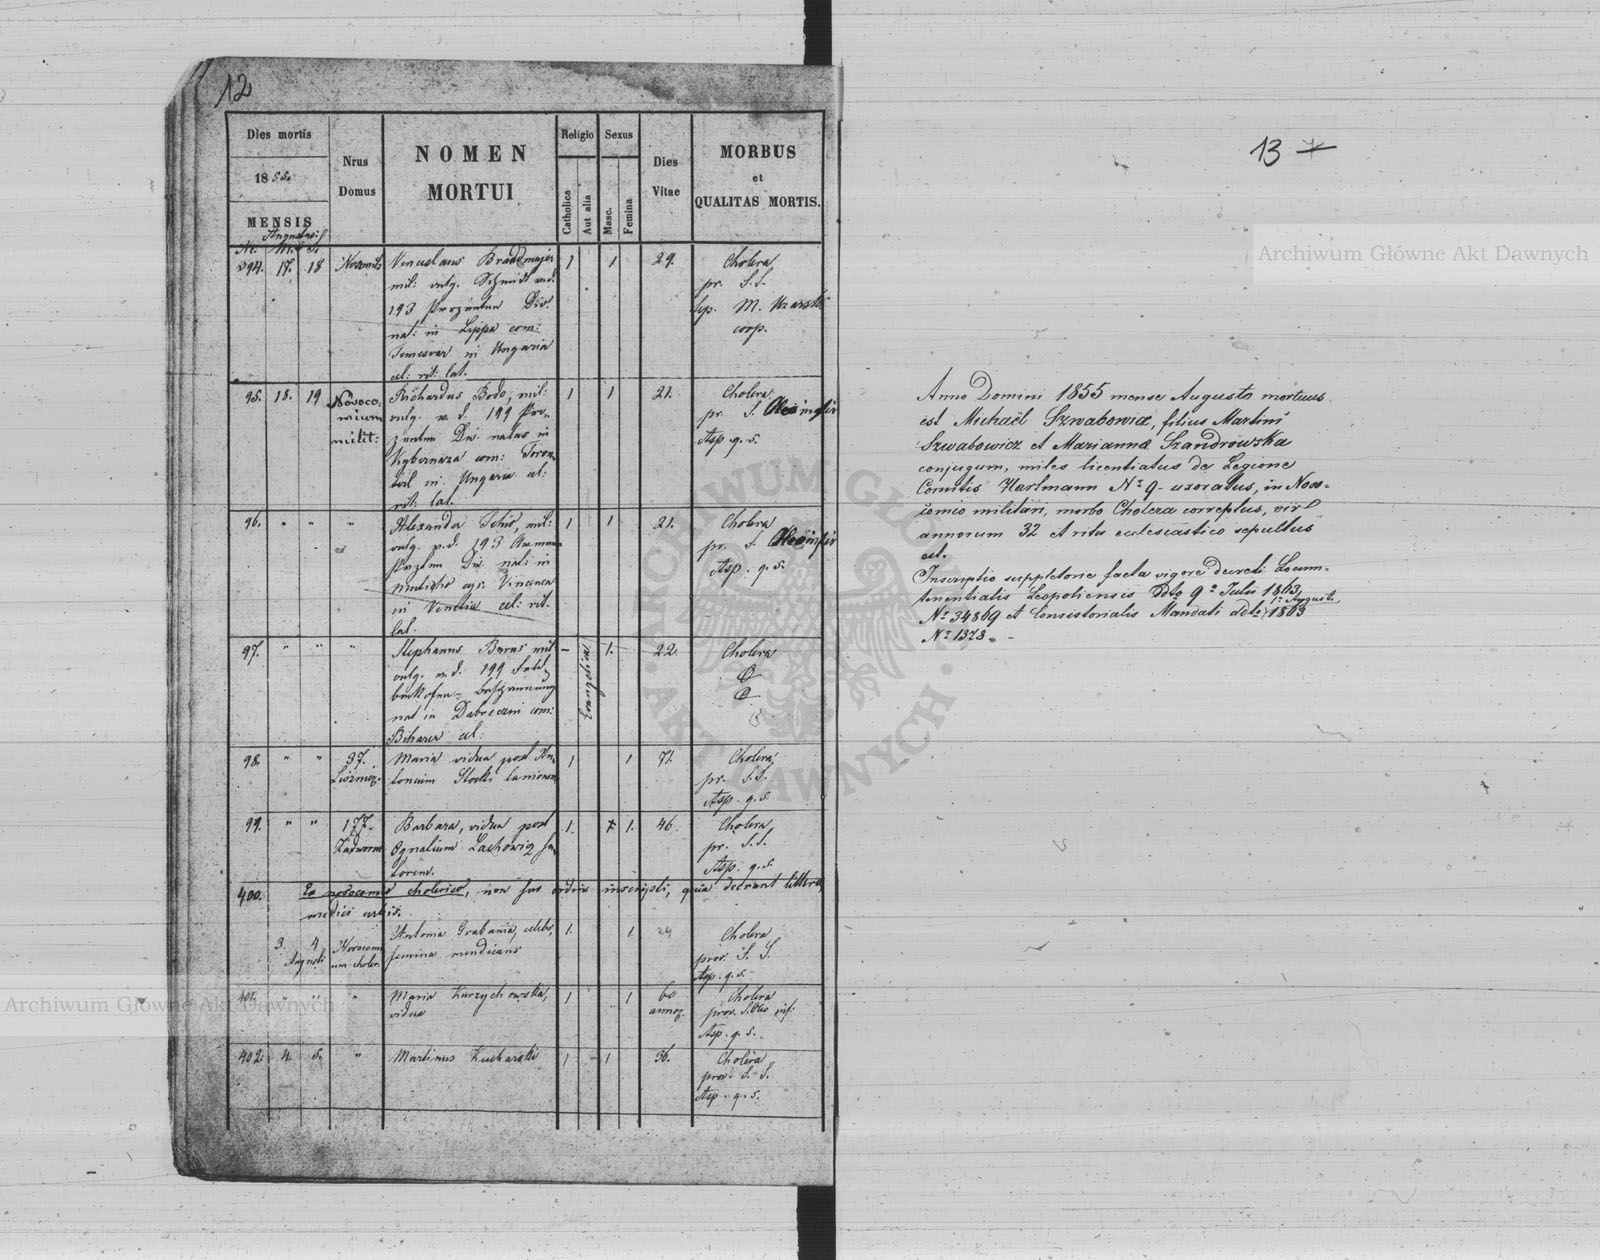 12
Dies mortis
1855.
MENSIS
Augustus
Nrus
Domus
NOMEN
MORTUI
Religio
Catholica
Aut alia
Sexus
Masc.
Femina
Dies
Vitae
MORBUS
et
QUALITAS MORTIS.
394. 17. 18
mil: vulg.
193
nat: in Lippa com:
Temesvar in Ungaria
cel: rit: lat.
1 1 29.
Cholera
pr. S.S.
Sep. M.
coop.
95. 18. 19 Nosoco-
mium
milit:
Richardus Bodo, mil:
vulg. 199
natus in
in Ungaria cel:
rit: lat.
1 1 21.
Cholera
pr. S.
Asp. q. s.
96. " " "
Alexander mil:
vulg. 193
nat: in
Vincenca
in Venetia cel: rit.
lat.
1 1 21.
Cholera
pr. S.
Asp. q. s.
97. " " "
Stephanus mil
vulg. 199
nat in Dabreczin com:
Biharer cel:
– Evangelica 1. 22
Cholera
98. " " 37.
Maria vidua post An-
tonium lanionem
1 1 71.
Cholera
pr. S.S.
Asp. q. s.
99. " " 177.
Barbara, vidua post
Ignatium Lachowicz
1. 1. 46.
Cholera
pr. S.S.
Asp. q. s.
400. nosocomio cholerico, non suo ordine inscripti, quia deerant litterae
medici
3. 4 Augusti
Nosocomi-
um choler.
Antonia Grabania, celebs,
femina mendicans
1. 1. 24
Cholera
prov. S. S.
Asp. q. s.
401. " " "
Maria Kurzychowska,
vidua
1 1 60
annor.
Cholera
prov. S. Oleo inf:
Asp. q. s.
402. 4. 5. "
Martinus Kucharski
1 1 36.
Cholera
prov. S. S.
Asp. q. s.
13
Anno Domini 1855 mense Augusto mortuus
est Michaël Szwabowicz, filius Martini
Szwabowicz et Marianna Szandrowska
conjugum, miles licentiatus de Legione
Comitis Hartmann Nr 9 – uxoratus, in Noso-
comio militari, morbo Cholera correptus, vir
annorum 32 et ritu ecclesiastico sepultus
est.
Inscriptio suppletorie facta vigore decreti Locum-
tenentialis Leopoliensis ddto 9a Julii 1863,
Nr 34869 et Consistorialis Mandati ddto 1a Augusti 1863
Nr 1378. –
Archiwum Główne Akt Dawnych
Archiwum Główne Akt Dawnych
ARCHIWUM GŁÓWNE · AKT DAWNYCH ·